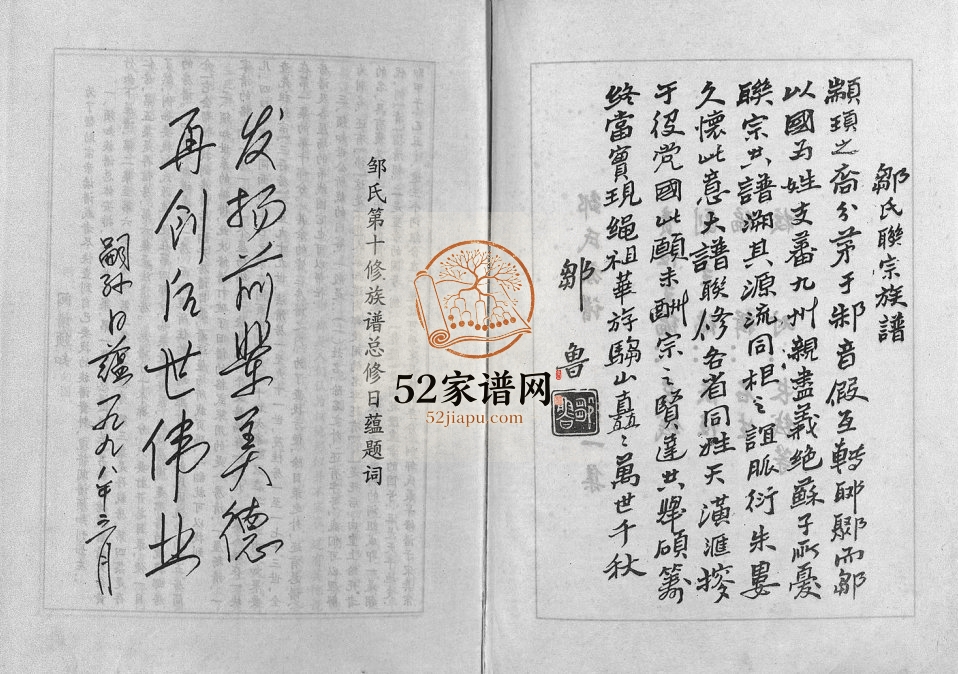 鄒氏聯宗族譜
顓頊之裔分茅于邾音假互轉郰鄹而鄒
以國為姓支蕃九州親盡義絕蘇子所憂
聯宗共譜溯其源流同根之誼脈衍朱婁
久懷此意大譜聯修各省同姓天潢滙
于役党國此願未酬宗之賢達共擧碩籌
終當實現繩祖華游騶山矗々萬世千秋
鄒魯
邹氏第十修族谱总修日蕴题词
发扬前辈美德
再创后世伟业
嗣孙日蕴一九九八年三月
52家谱网
52jiapu.com